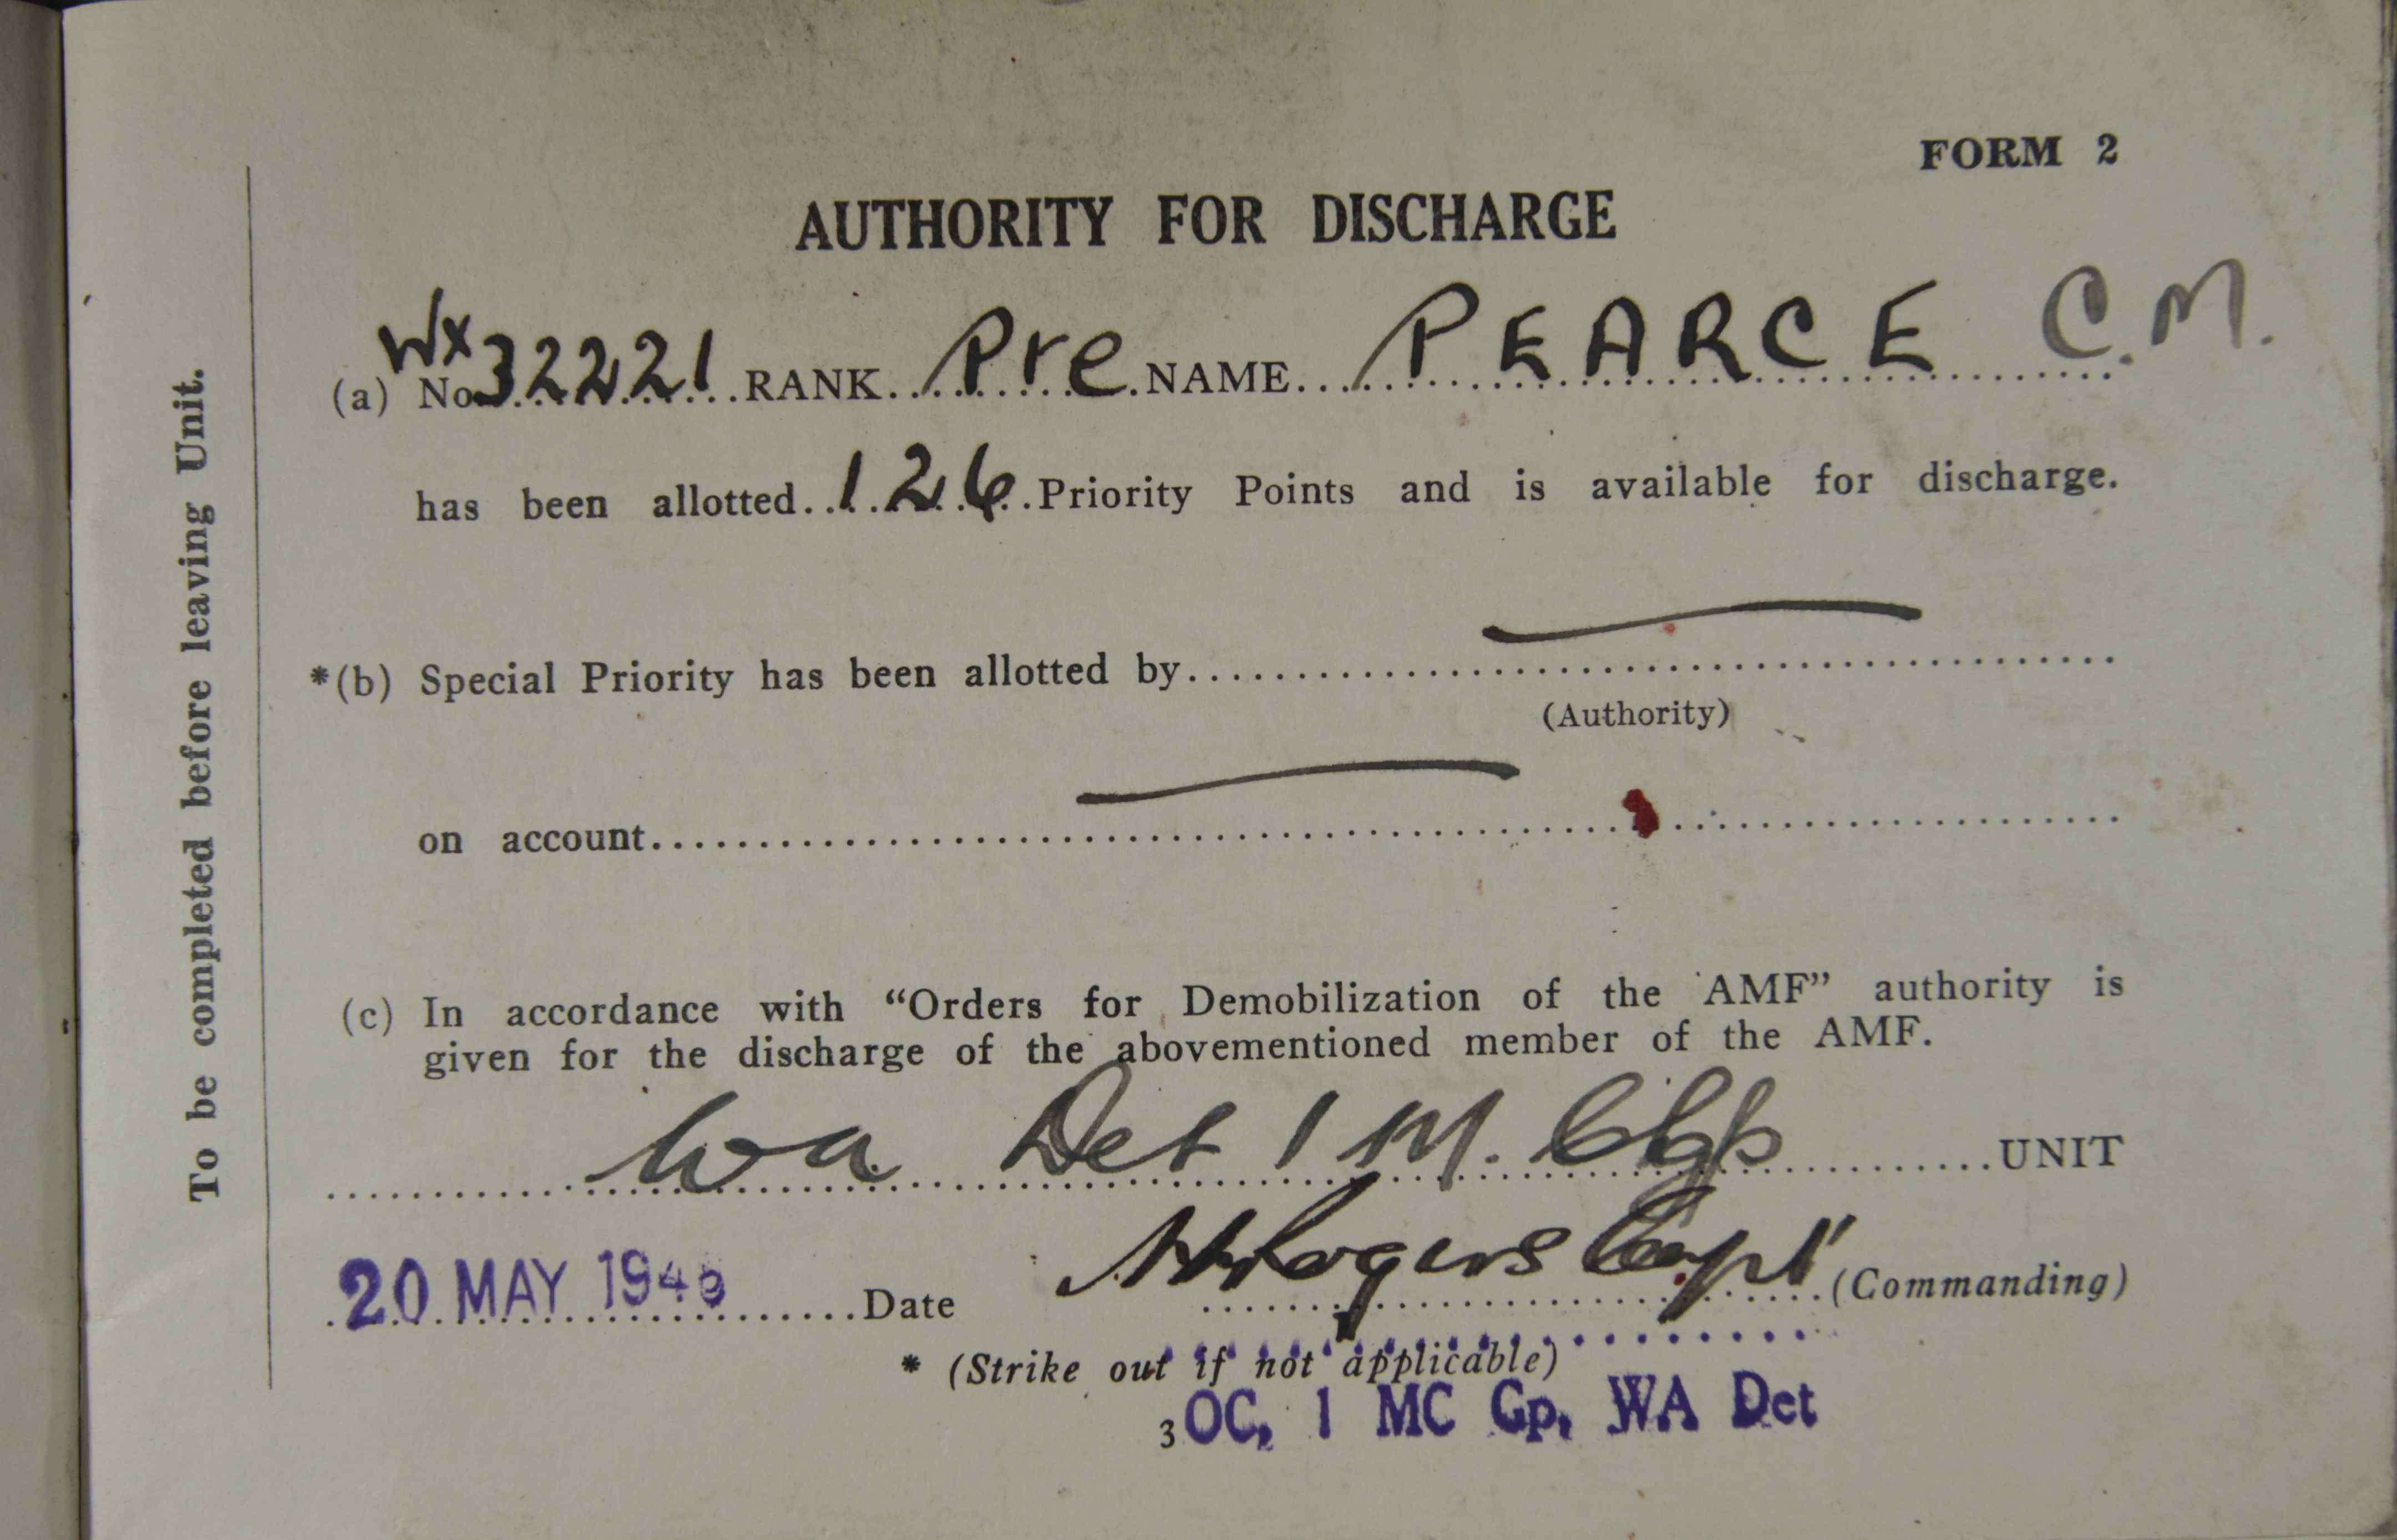 FORM 2
AUTHORITY FOR DISCHARGE
(a) No. WX32221 RANK Pte NAME PEARCE C.M.
has been allotted 126 Priority Points and is available for discharge.
*(b) Special Priority has been allotted by
(Authority)
on account
(c) In accordance with “Orders for Demobilization of the AMF” authority is
given for the discharge of the abovementioned member of the AMF.
WA Det 1 M. C Gp UNIT
20 MAY 1946 Date Rogers Capt (Commanding)
* (Strike out if not applicable)
3 OC, 1 MC Gp, WA Det
To be completed before leaving Unit.